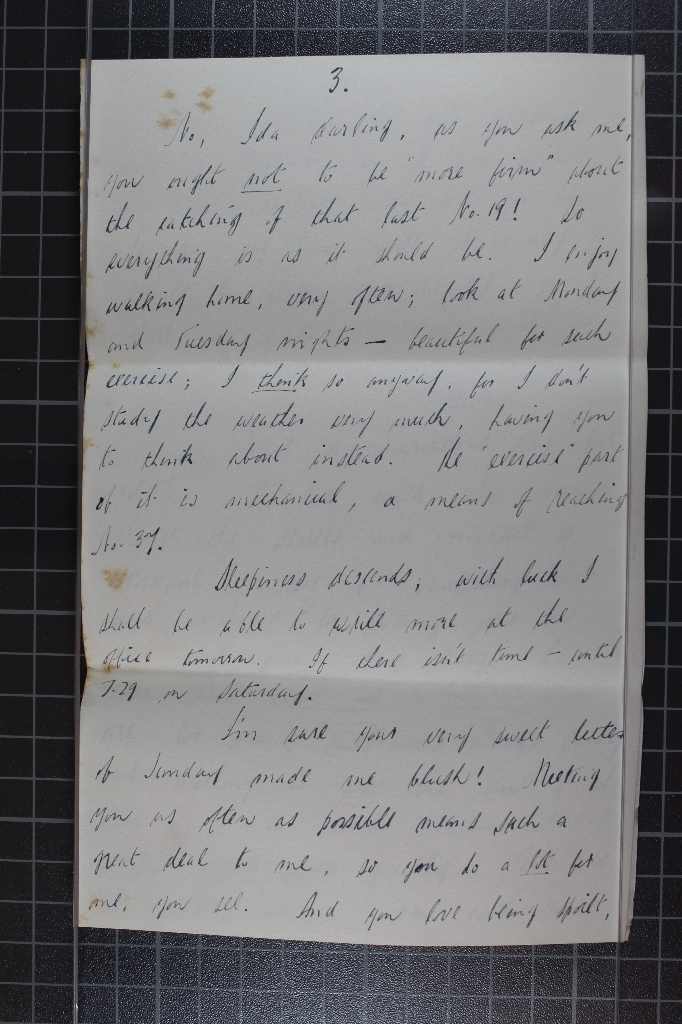 3.
No, Ida darling, as you ask me,
you ought not to be "more firm" about
the catching of that last No. 19! So
everything is as it should be. I enjoy
walking home, very often; look at Monday
and Tuesday nights — beautiful for such
exercise; I think so anyway, for I don't
study the weather very much, having you
to think about instead. The "exercise" part
of it is mechanical, a means of reaching
No. 37.
Sleepiness descends; with luck I
shall be able to write more at the
office tomorrow. If there isn't time — until
7.29 on Saturday.
I'm sure your very sweet letter
of Sunday made me blush! Meeting
you as often as possible means such a
great deal to me, so you do a lot for
me, you see. And you love being spoilt,